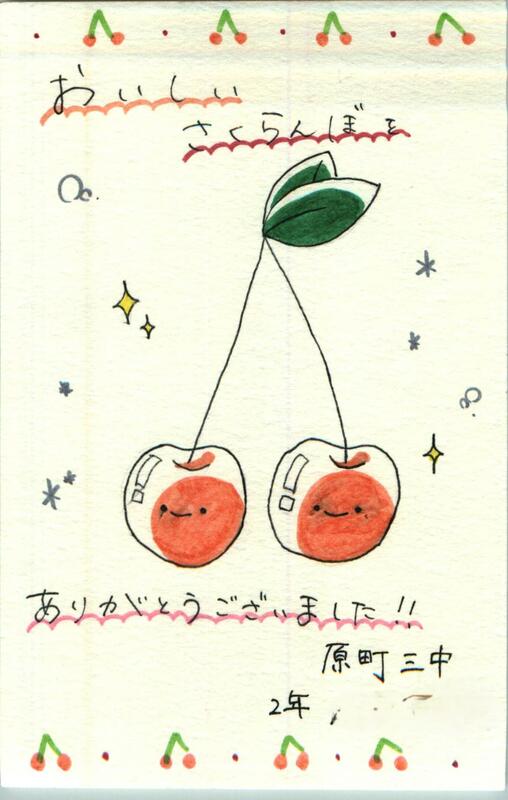 おいしい
さくらんぼを
ありがとうございました!!
原町三中
2年